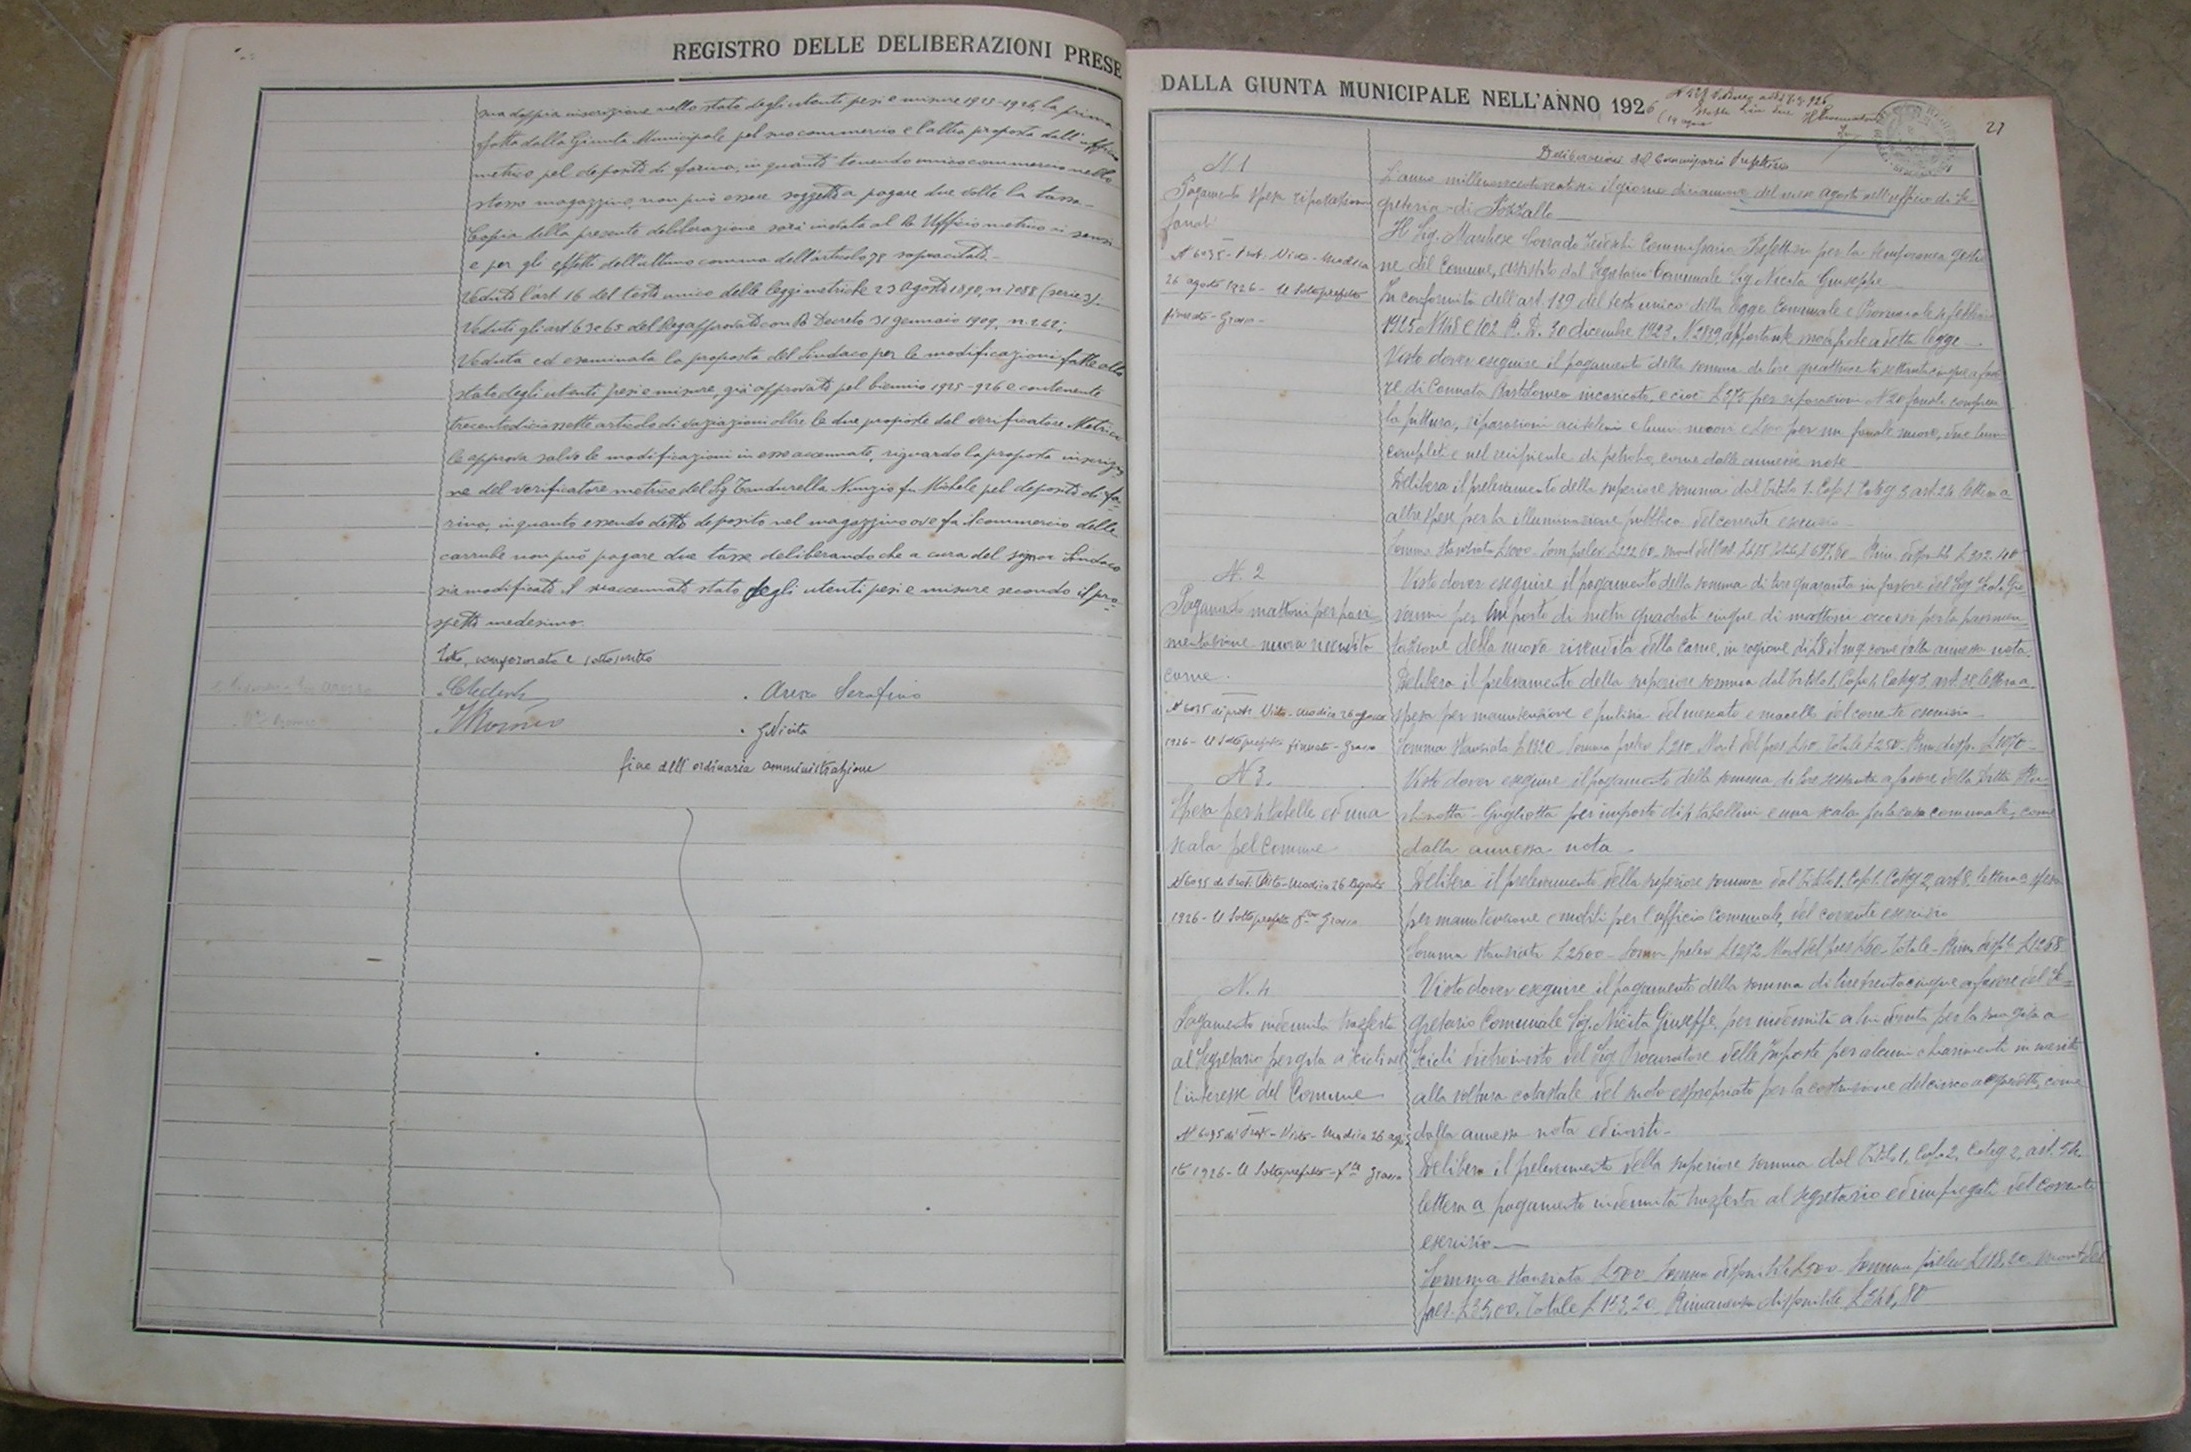 REGISTRO DELLE DELIBERAZIONI PRESE
sua doppia inscrizione nello stato degli utenti pesi e misure 1925-1926, la prima
fatta dalla Giunta Municipale pel suo commercio e l'altra proposta dall'ufficio
metrico pel deposito di farina, in quanto tenendo unico commercio nello
stesso magazzino, non può essere soggetto a pagare due volte la tassa -
Copia della presente deliberazione sarà inviata al R. Ufficio metrico ai sensi
e per gli effetti dell'ultimo comma dell'articolo 78 sopracitato. -
Veduto l'art. 16 del testo unico delle leggi metriche 23 Agosto 1890, n. 7088 (serie 3).
Veduti gli art. 63 e 65 del Reg. approvato con R. Decreto 31 gennaio 1909, n. 242;
Veduta ed esaminata la proposta del Sindaco per le modificazioni fatte allo
stato degli utenti pesi e misure, già approvato pel biennio 1925-926 e contenente
trecentodiciasette articolo di variazioni oltre le due proposte dal verificatore Metrico
le approva salvo le modificazioni in esse accennate, riguardo la proposta inscrizio-
ne del verificatore metrico del Sig. Tandurella Nunzio fu Michele pel deposito di fa-
rina, in quanto essendo detto deposito nel magazzino ove fa il commercio delle
carrube non può pagare due tasse deliberando che a cura del signor Sindaco
sia modificato il suaccennato stato degli utenti pesi e misure secondo il pro-
spetto medesimo.
Letto, confermato e sottoscritto
Arezzo Serafino
GNicita
fine dell'ordinaria amministrazione
DALLA GIUNTA MUNICIPALE NELL'ANNO 1926
27
Deliberazioni del Commissario Prefettizio
N. 1
Pagamento spesa riparazione
fanali
N 6095 - Prot. Visto - Modica
26 agosto 1926 - Il Sottoprefetto
firmato - Grasso -
L'anno millenovecentoventisei il giorno diciannove del mese agosto nell'ufficio di Se-
greteria di Pozzallo
Il Sig. Marchese Corrado Tedeschi Commissario Prefettizio per la temporanea gestio-
ne del Comune, assistito dal Segretario Comunale Sig. Nicita Giuseppe
In conformità dell'art. 139 del testo unico della legge Comunale e Provinciale 4 febbraio
1915 N 148 e 102 R. D. 30 dicembre 1923, N 2839, apportante modifiche a detta legge -
Visto dover eseguire il pagamento della somma di lire quattrocento settantacinque a favo-
re di Cannata Bartolomeo incaricato, e cioè £ 375 per riparazioni N 20 fanali compresa
la pittura, riparazioni acitelene e lumi nuovi e £ 100 per un fanale nuovo, due lumi
completi e nel recipiente di petrolio, come dalle annesse note
Delibera il prelevamento della superiore somma dal Titolo 1. Cap. 1 Categ 3 art. 24 lettera a
altre spese per la illuminazione pubblica del corrente esercizio -
N. 2
Pagamento mattoni per pavi-
mentazione nuova vendita
carne.
N 6095 di prot. Visto - Modica 26 agosto
1926 - Il Sottoprefetto firmato - Grasso
Visto dover eseguire il pagamento della somma di lire quaranta in favore del Sig. Scala Gio-
vanni per importo di metri quadrati cinque di mattoni occorsi per la pavimen-
tazione della nuova rivendita della Carne, in ragione di £ 8 il mq. come dalla annessa nota.
Delibera il prelevamento della superiore somma dal Titolo 1, Capo 1, Categ 3, art. 38, lettera a
spesa per manutenzione e pulizia del mercato e macello del corrente esercizio -
Somma stanziata £ 1320 - Somma prelev. £ 210 - Mand. del pres. £ 40 Totale £ 250 - Rim. disp. £ 1070 -
N 3.
Spesa per 4 tabelle ed una
scala pel Comune
N 6095 di Prot. Visto - Modica 26 Agosto
1926 - Il Sottoprefetto Grasso
Visto dover eseguire il pagamento della somma di lire sessanta a favore della Ditta
- Gugliotta per importo di 4 tabelline e una scala per la casa comunale, come
dalla annessa nota -
Delibera il prelevamento della superiore somma dal Titolo 1. Capo 1. Categ 2, art 8, lettera a spesa
per manutenzione e mobili per l'ufficio Comunale, del corrente esercizio
Somma stanziata £ 2500 - Somma prelev. £ 1272 Mand. del pres £ 60 - Totale - Rim. disp.le £ 1268
N. 4
Pagamento indennità trasferta
al Segretario per gita a Scicli nel
l'interesse del Comune
N 6095 di Prot. - Visto - Modica 26 ago-
sto 1926 - Il Sottoprefetto - Grasso
Visto dover eseguire il pagamento della somma di lire trentacinque a favore del Se-
gretario Comunale Sig. Nicita Giuseppe, per indennità a lui dovuta per la sua gita a
Scicli dietro invito del Sig. Procuratore delle Imposte per alcuni chiarimenti in merito
alla voltura catastale del suolo espropriato per la costruzione del acquedotto, come
dalla annessa nota ed invito -
Delibera il prelevamento della superiore somma dal Titolo 1, Capo 2, Categ 2, art. 54
lettera a pagamento indennità trasferta al segretario ed impiegati del corrente
esercizio -
Somma stanziata £ 500 - Somma disponibile £ 500 - Somma prelev £ 118,20 - mand. del
pres. £ 35,00. Totale £ 153,20 Rimanenza disponibile £ 346,80